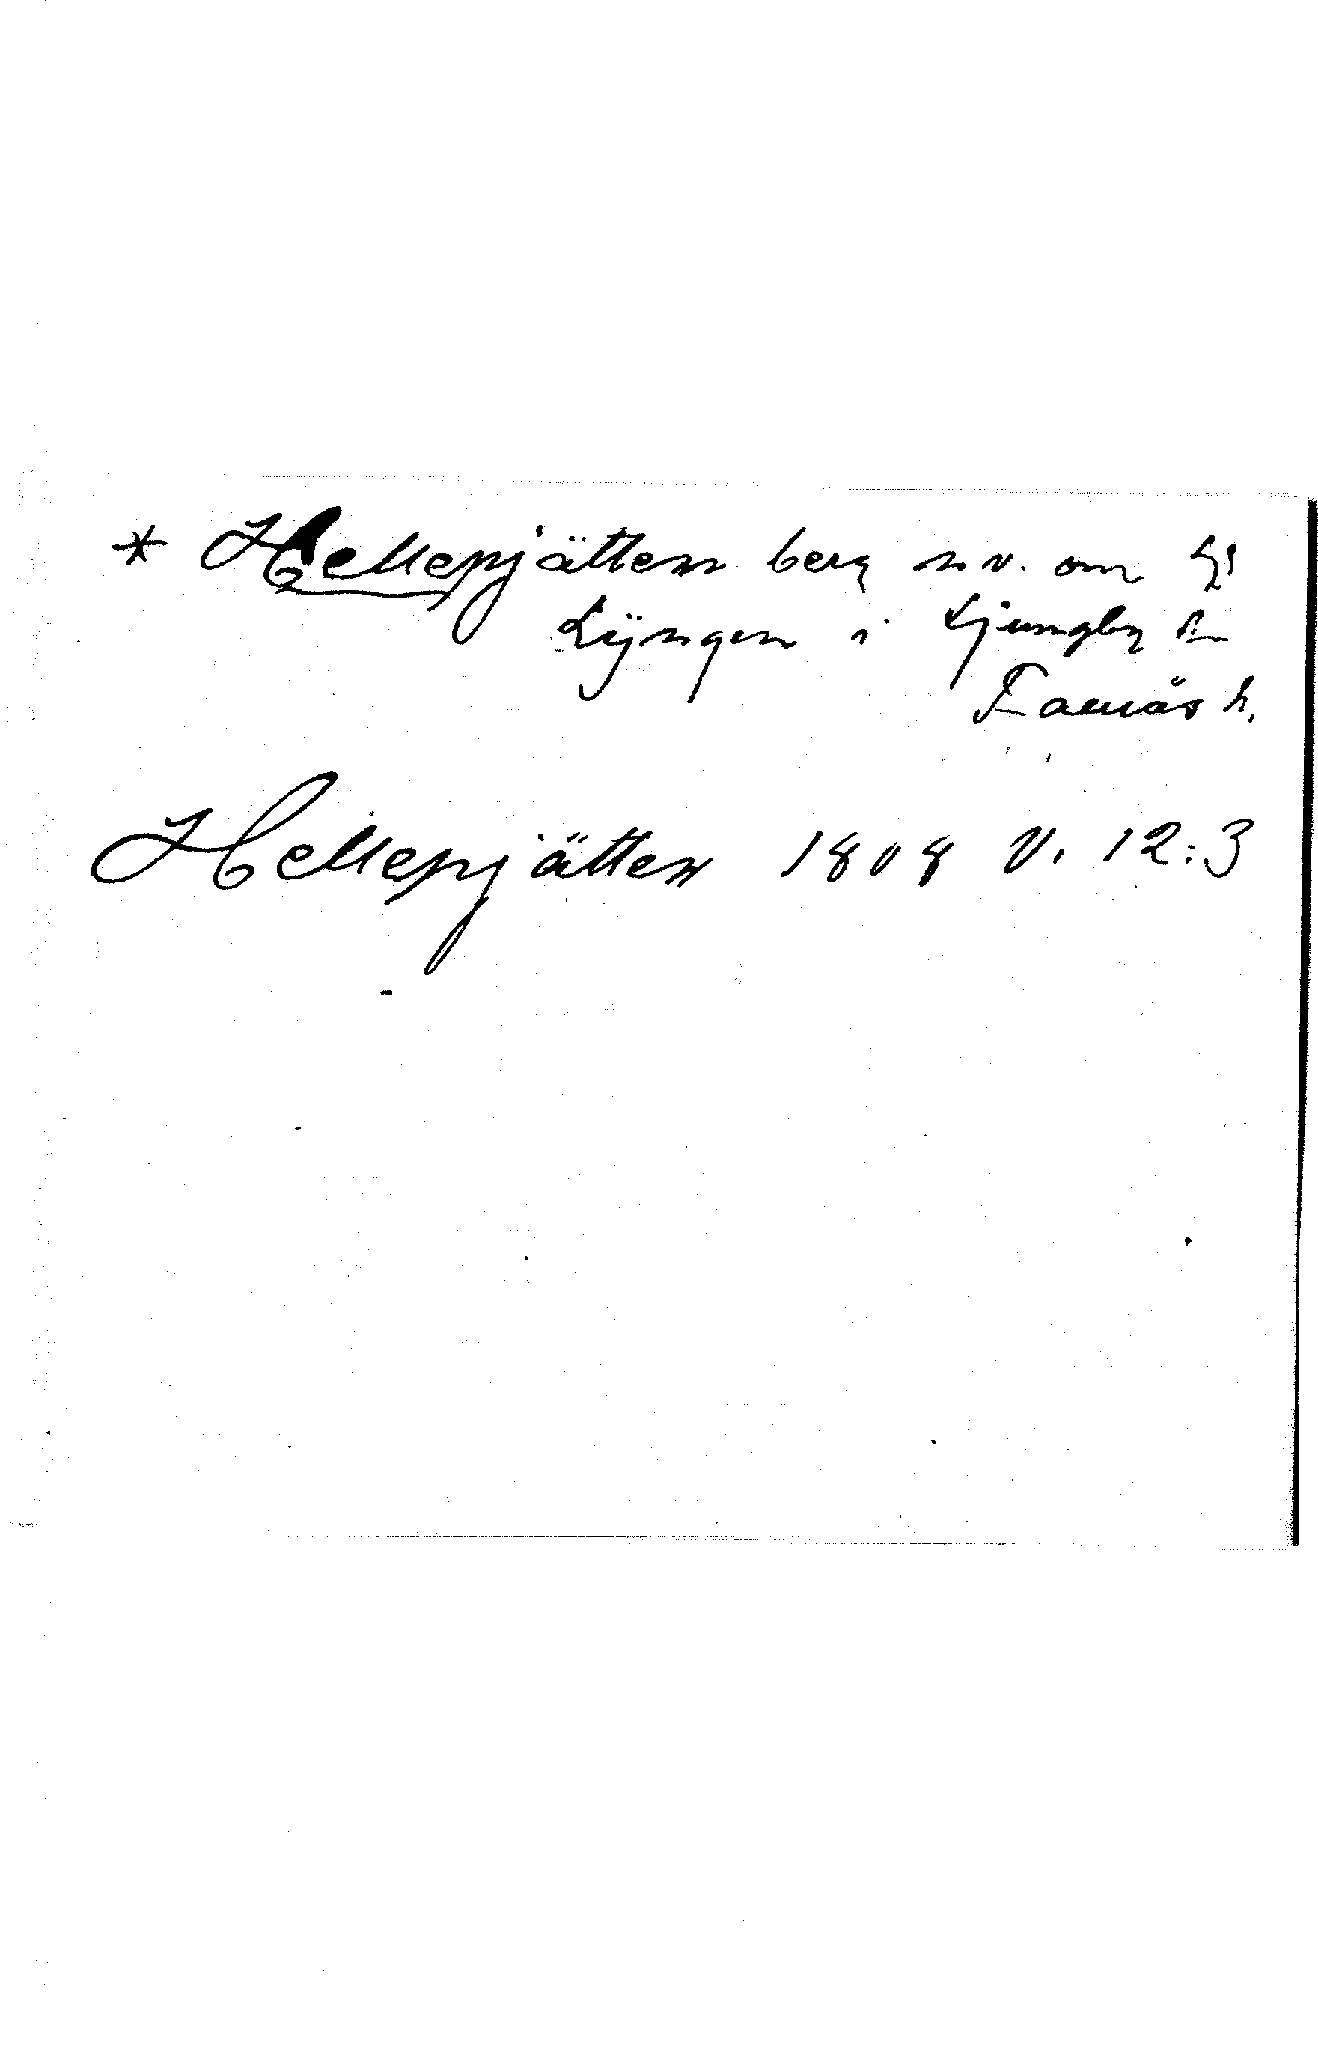 * Hellepjätten berg n.v. om
Lyngen i Ljungby
Faurås h.
Hellepjätten 1808 V. 12:3